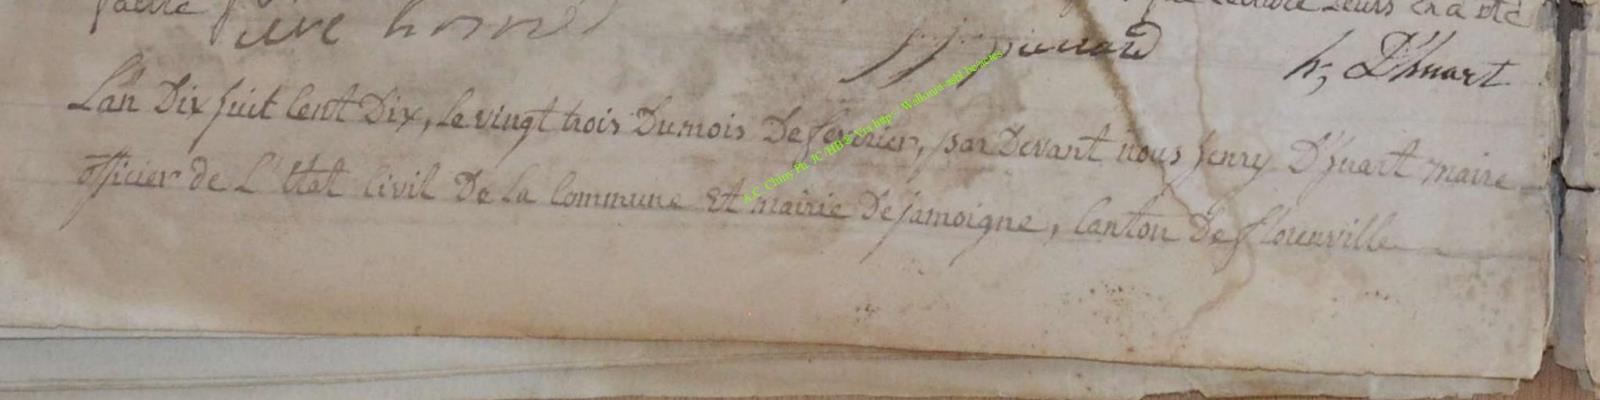 lecture leurs en a eté
h; D'huart
L'an Dix huit Cent Dix, le vingt trois Du mois De fevrier, par Devant nous henry D'huart maire
officier de L'Etat Civil De la Commune Et mairie De jamoigne, Canton De florenville
A.C. Chiny Ph. JC /HB & Via http:// Wallonia-asbl.be/actes